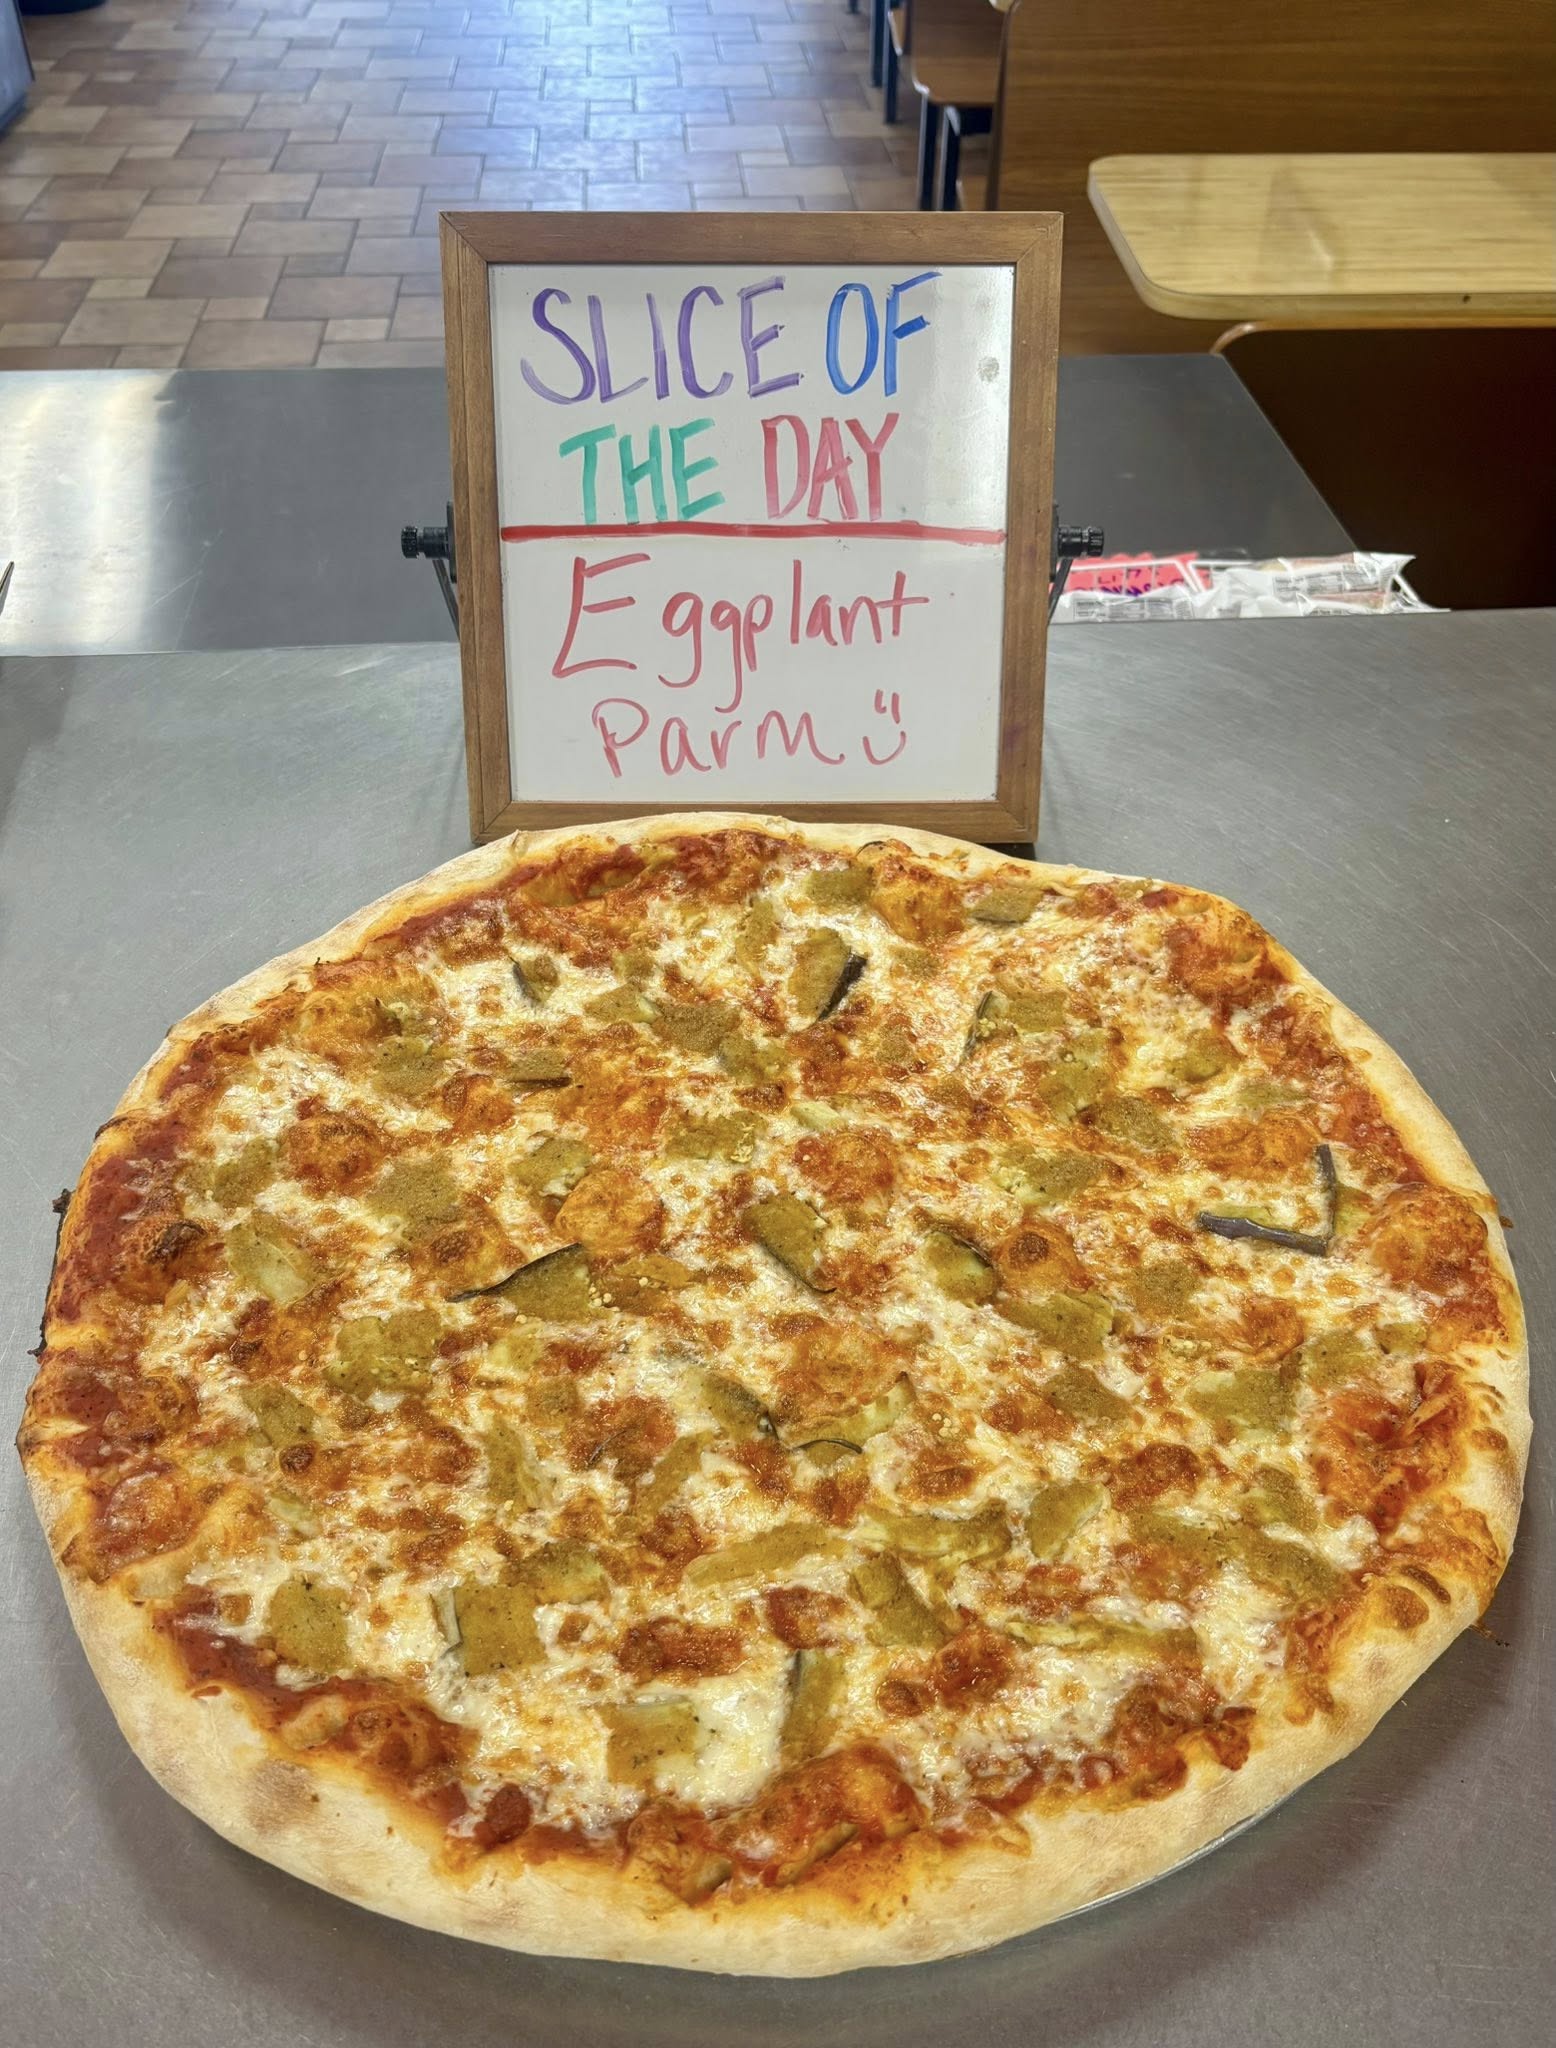 SLICE OF
THE DAY
Eggplant
Parm